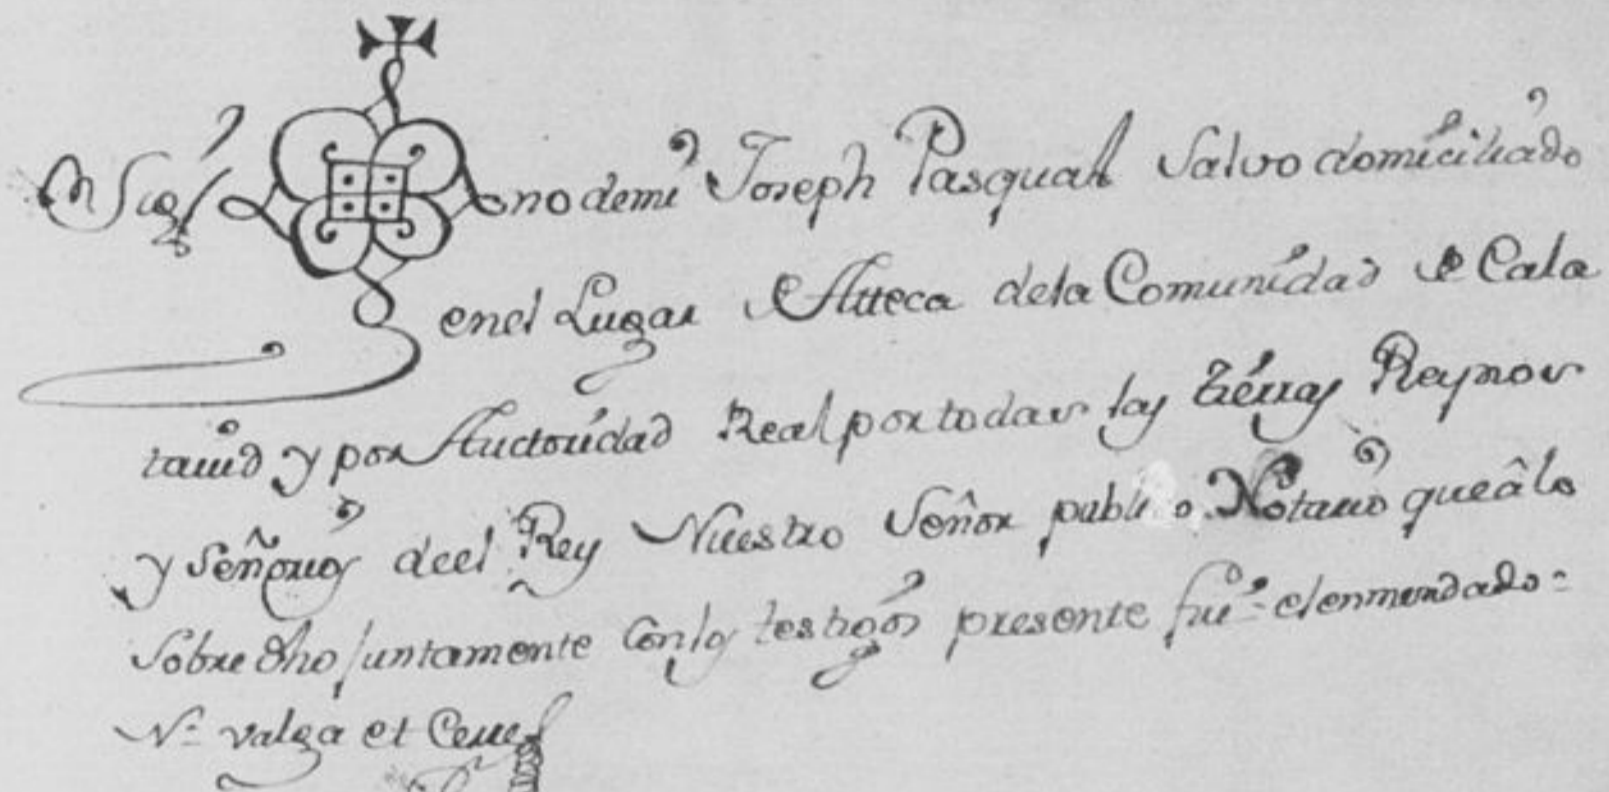 Sig no de mi Joseph Pasqual Salvo domiciliado
en el Lugar de Atteca de la Comunidad de Cala
taiud y por Auctoridad Real por todas las tierras Reynos
y señorios de el Rey Nuestro Señor publico Notario que â lo
sobre dho juntamente con los testigos presente fui = el enmendado =
N.= valga et Cerre